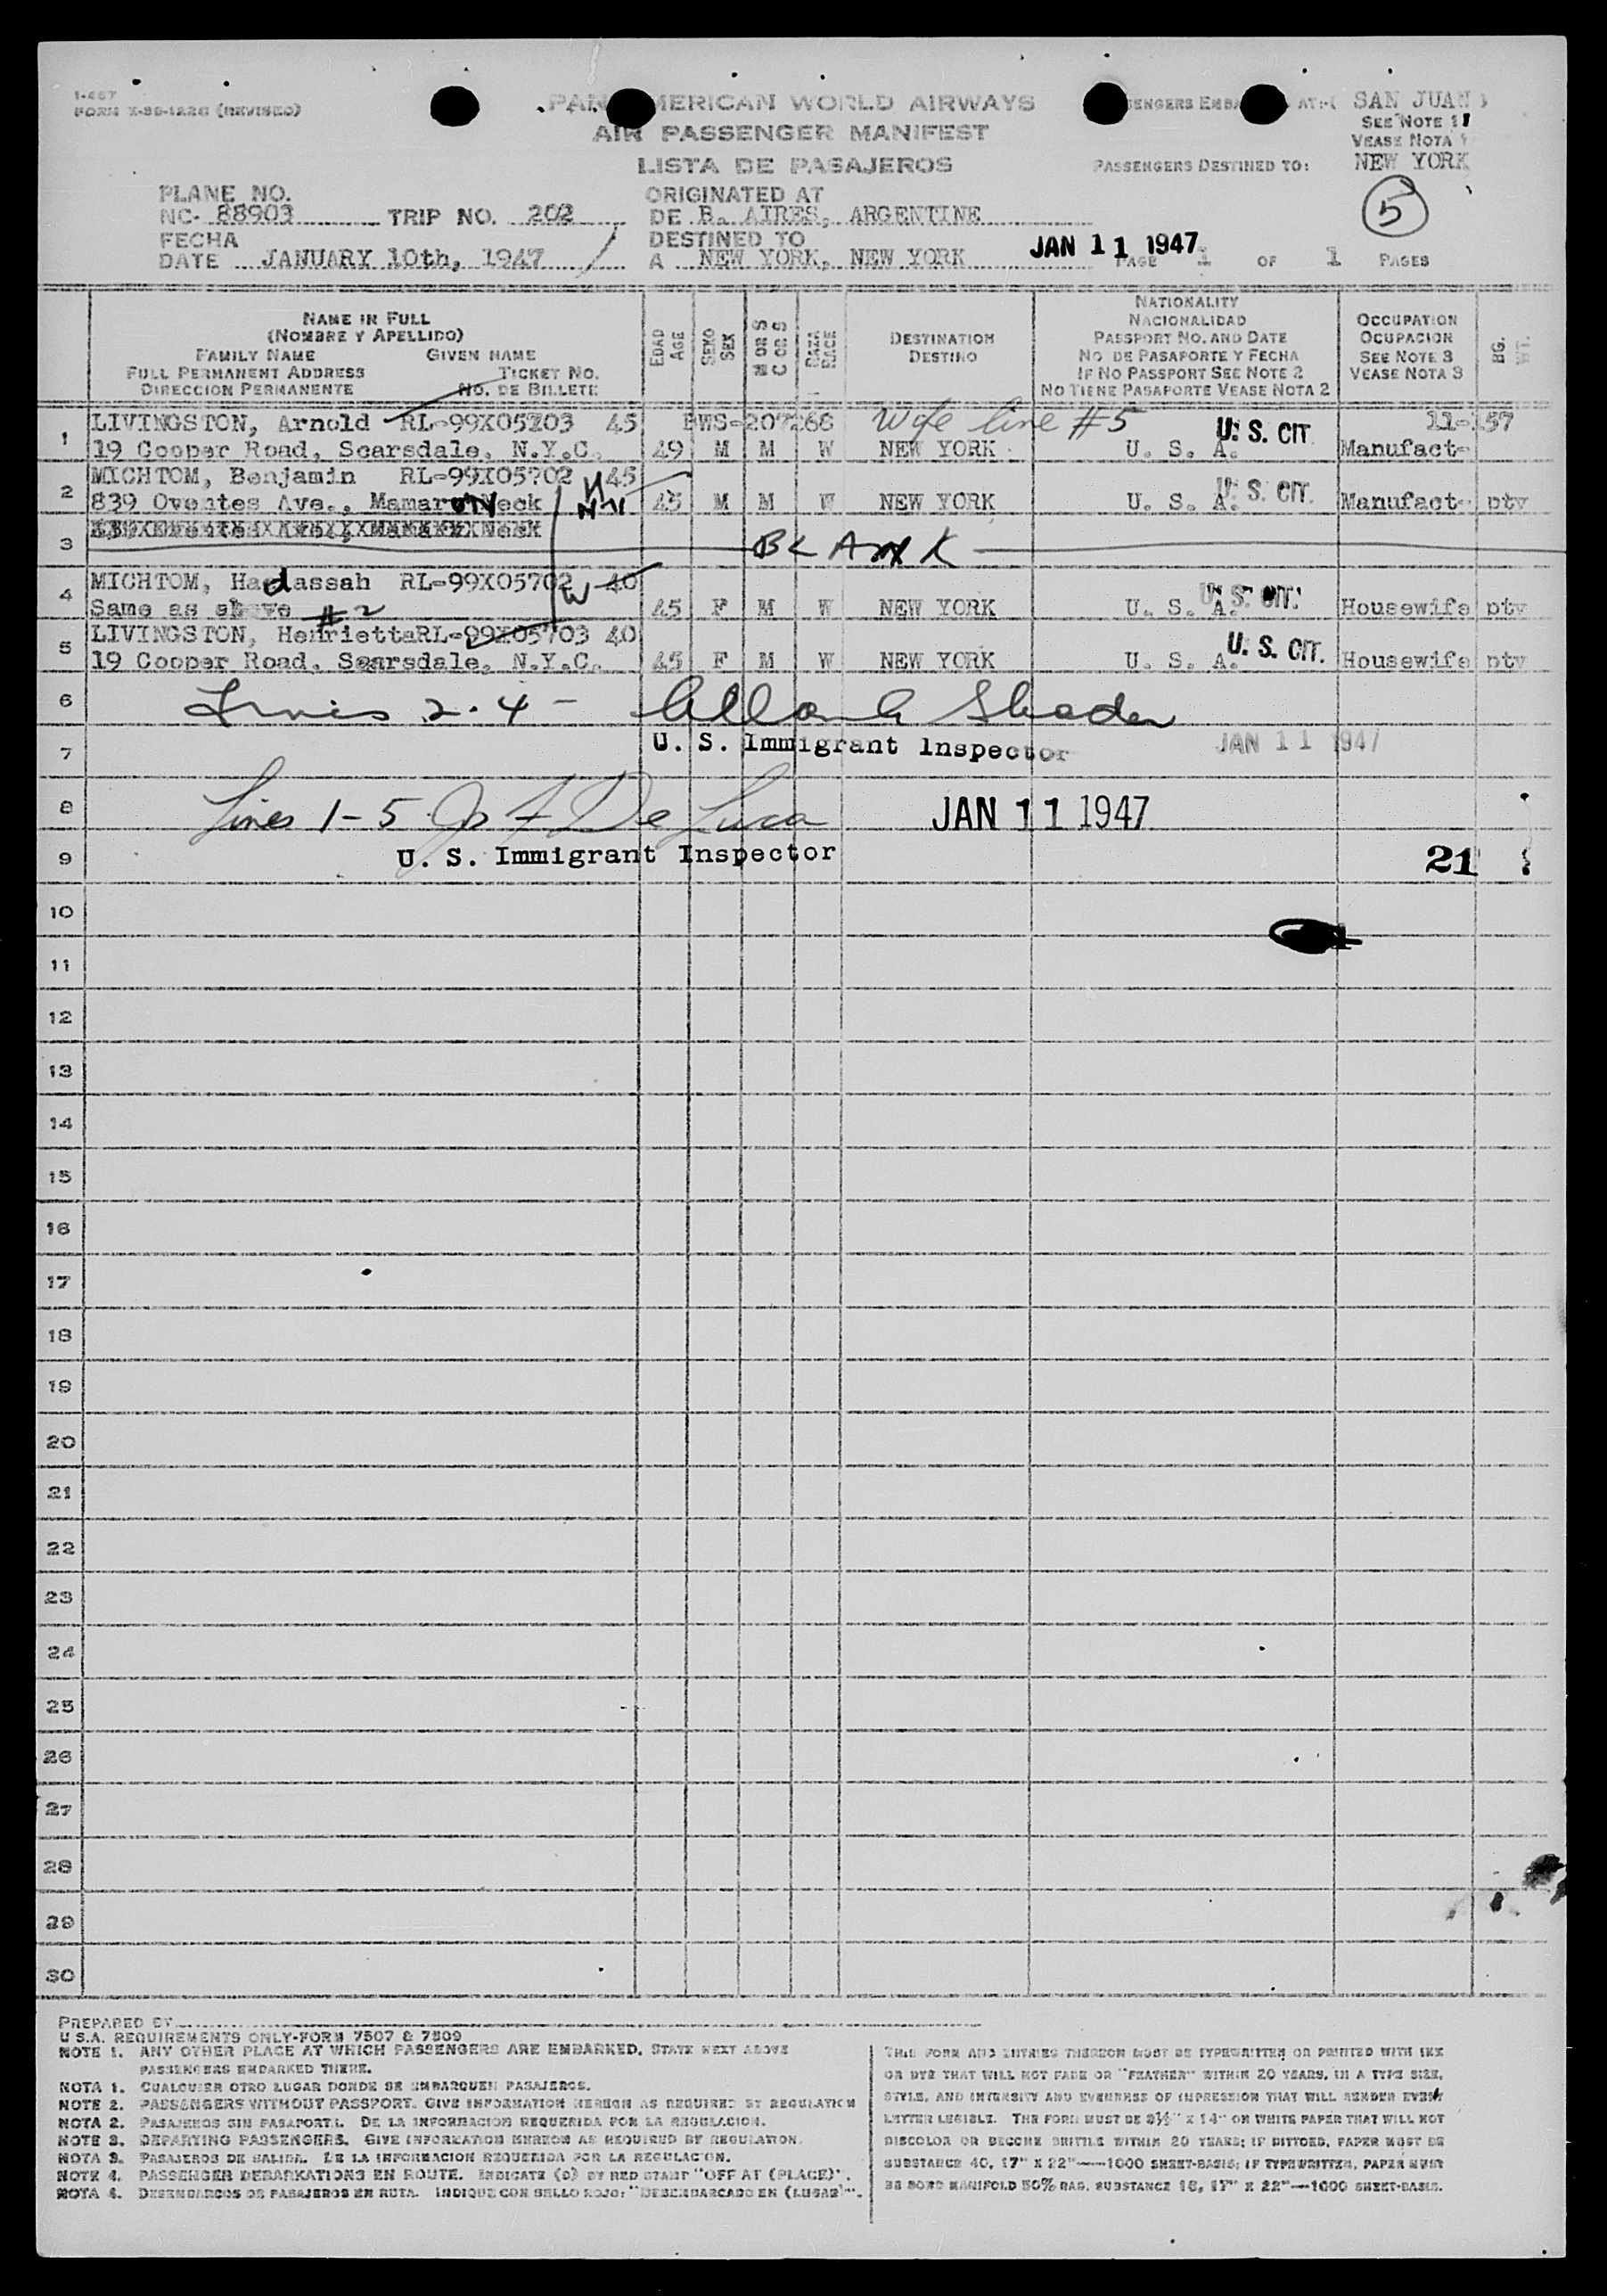 1-467
FORM X-86-122G (REVISED)
PAN AMERICAN WORLD AIRWAYS
AIR PASSENGER MANIFEST
LISTA DE PASAJEROS
PASSENGERS EMBA AT:-( SAN JUAN )
SEE NOTE 1
VEASE NOTA 1
PASSENGERS DESTINED TO: NEW YORK
5
PLANE NO.
NC- 88903 TRIP NO. 202
ORIGINATED AT
DE B. AIRES, ARGENTINE
FECHA
DATE JANUARY 10th, 1947
DESTINED TO
A NEW YORK, NEW YORK
JAN 11 1947
PAGE 1 OF 1 PAGES
NAME IN FULL
(NOMBRE Y APELLIDO)
FAMILY NAME GIVEN NAME
FULL PERMANENT ADDRESS TICKET NO.
DIRECCION PERMANENTE NO. DE BILLETE
EDAD
AGE
SEXO
SEX
M OR S
C OR S
RAZA
RACE
DESTINATION
DESTINO
NATIONALITY
NACIONALIDAD
PASSPORT NO. AND DATE
NO DE PASAPORTE Y FECHA
IF NO PASSPORT SEE NOTE 2
NO TIENE PASAPORTE VEASE NOTA 2
OCCUPATION
OCUPACION
SEE NOTE 3
VEASE NOTA 3
BG.
WT.
1 LIVINGSTON, Arnold RL-99X05703 45 BWS-207268 Wife line #5 U. S. CIT. 11-157
19 Cooper Road, Scarsdale, N.Y.C. 49 M M W NEW YORK U. S. A. Manufact-
2 MICHTOM, Benjamin RL-99X05702 H 45 U. S. CIT.
839 Oventes Ave., Mamaroneck NY 45 M M W NEW YORK U. S. A. Manufact- pty
3 BLANK
4 MICHTOM, Hadassah RL-99X05702 W 40 U. S. CIT.
Same as above #2 45 F M W NEW YORK U. S. A. Housewife pty
5 LIVINGSTON, Henrietta RL-99X05703 40 U. S. CIT.
19 Cooper Road, Scarsdale, N.Y.C. 45 F M W NEW YORK U. S. A. Housewife pty
6 Lines 2-4 -
7 U. S. Immigrant Inspector JAN 11 1947
8 Lines 1-5 De Luca JAN 11 1947
9 U. S. Immigrant Inspector 21
10
11
12
13
14
15
16
17
18
19
20
21
22
23
24
25
26
27
28
29
30
PREPARED BY
U.S.A. REQUIREMENTS ONLY-FORM 7507 & 7509
NOTE 1. ANY OTHER PLACE AT WHICH PASSENGERS ARE EMBARKED, STATE NEXT ABOVE
PASSENGERS EMBARKED THERE.
NOTA 1. CUALQUIER OTRO LUGAR DONDE SE EMBARQUEN PASAJEROS.
NOTE 2. PASSENGERS WITHOUT PASSPORT. GIVE INFORMATION HEREON AS REQUIRED BY REGULATION
NOTA 2. PASAJEROS SIN PASAPORTE. DE LA INFORMACION REQUERIDA POR LA REGULACION.
NOTE 3. DEPARTING PASSENGERS. GIVE INFORMATION HEREON AS REQUIRED BY REGULATION.
NOTA 3. PASAJEROS DE SALIDA. DE LA INFORMACION REQUERIDA POR LA REGULACION.
NOTE 4. PASSENGER DEBARKATIONS EN ROUTE. INDICATE (D) BY RED STAMP "OFF AT (PLACE)".
NOTA 4. DESEMBARCOS DE PASAJEROS EN RUTA. INDIQUE CON SELLO ROJO: "DESEMBARCADO EN (LUGAR)".
THIS FORM AND ENTRIES THEREON MUST BE TYPEWRITTEN OR PRINTED WITH INK
OR DYE THAT WILL NOT FADE OR "FEATHER" WITHIN 20 YEARS, IN A TYPE SIZE,
STYLE, AND INTENSITY AND EVENNESS OF IMPRESSION THAT WILL RENDER EVERY
LETTER LEGIBLE. THE FORM MUST BE 8½" X 14" ON WHITE PAPER THAT WILL NOT
DISCOLOR OR BECOME BRITTLE WITHIN 20 YEARS; IF DITTOED, PAPER MUST BE
SUBSTANCE 40, 17" X 22"—1000 SHEET-BASIS; IF TYPEWRITTEN, PAPER MUST
BE BOND MANIFOLD 50% RAG, SUBSTANCE 16, 17" X 22"—1000 SHEET-BASIS.